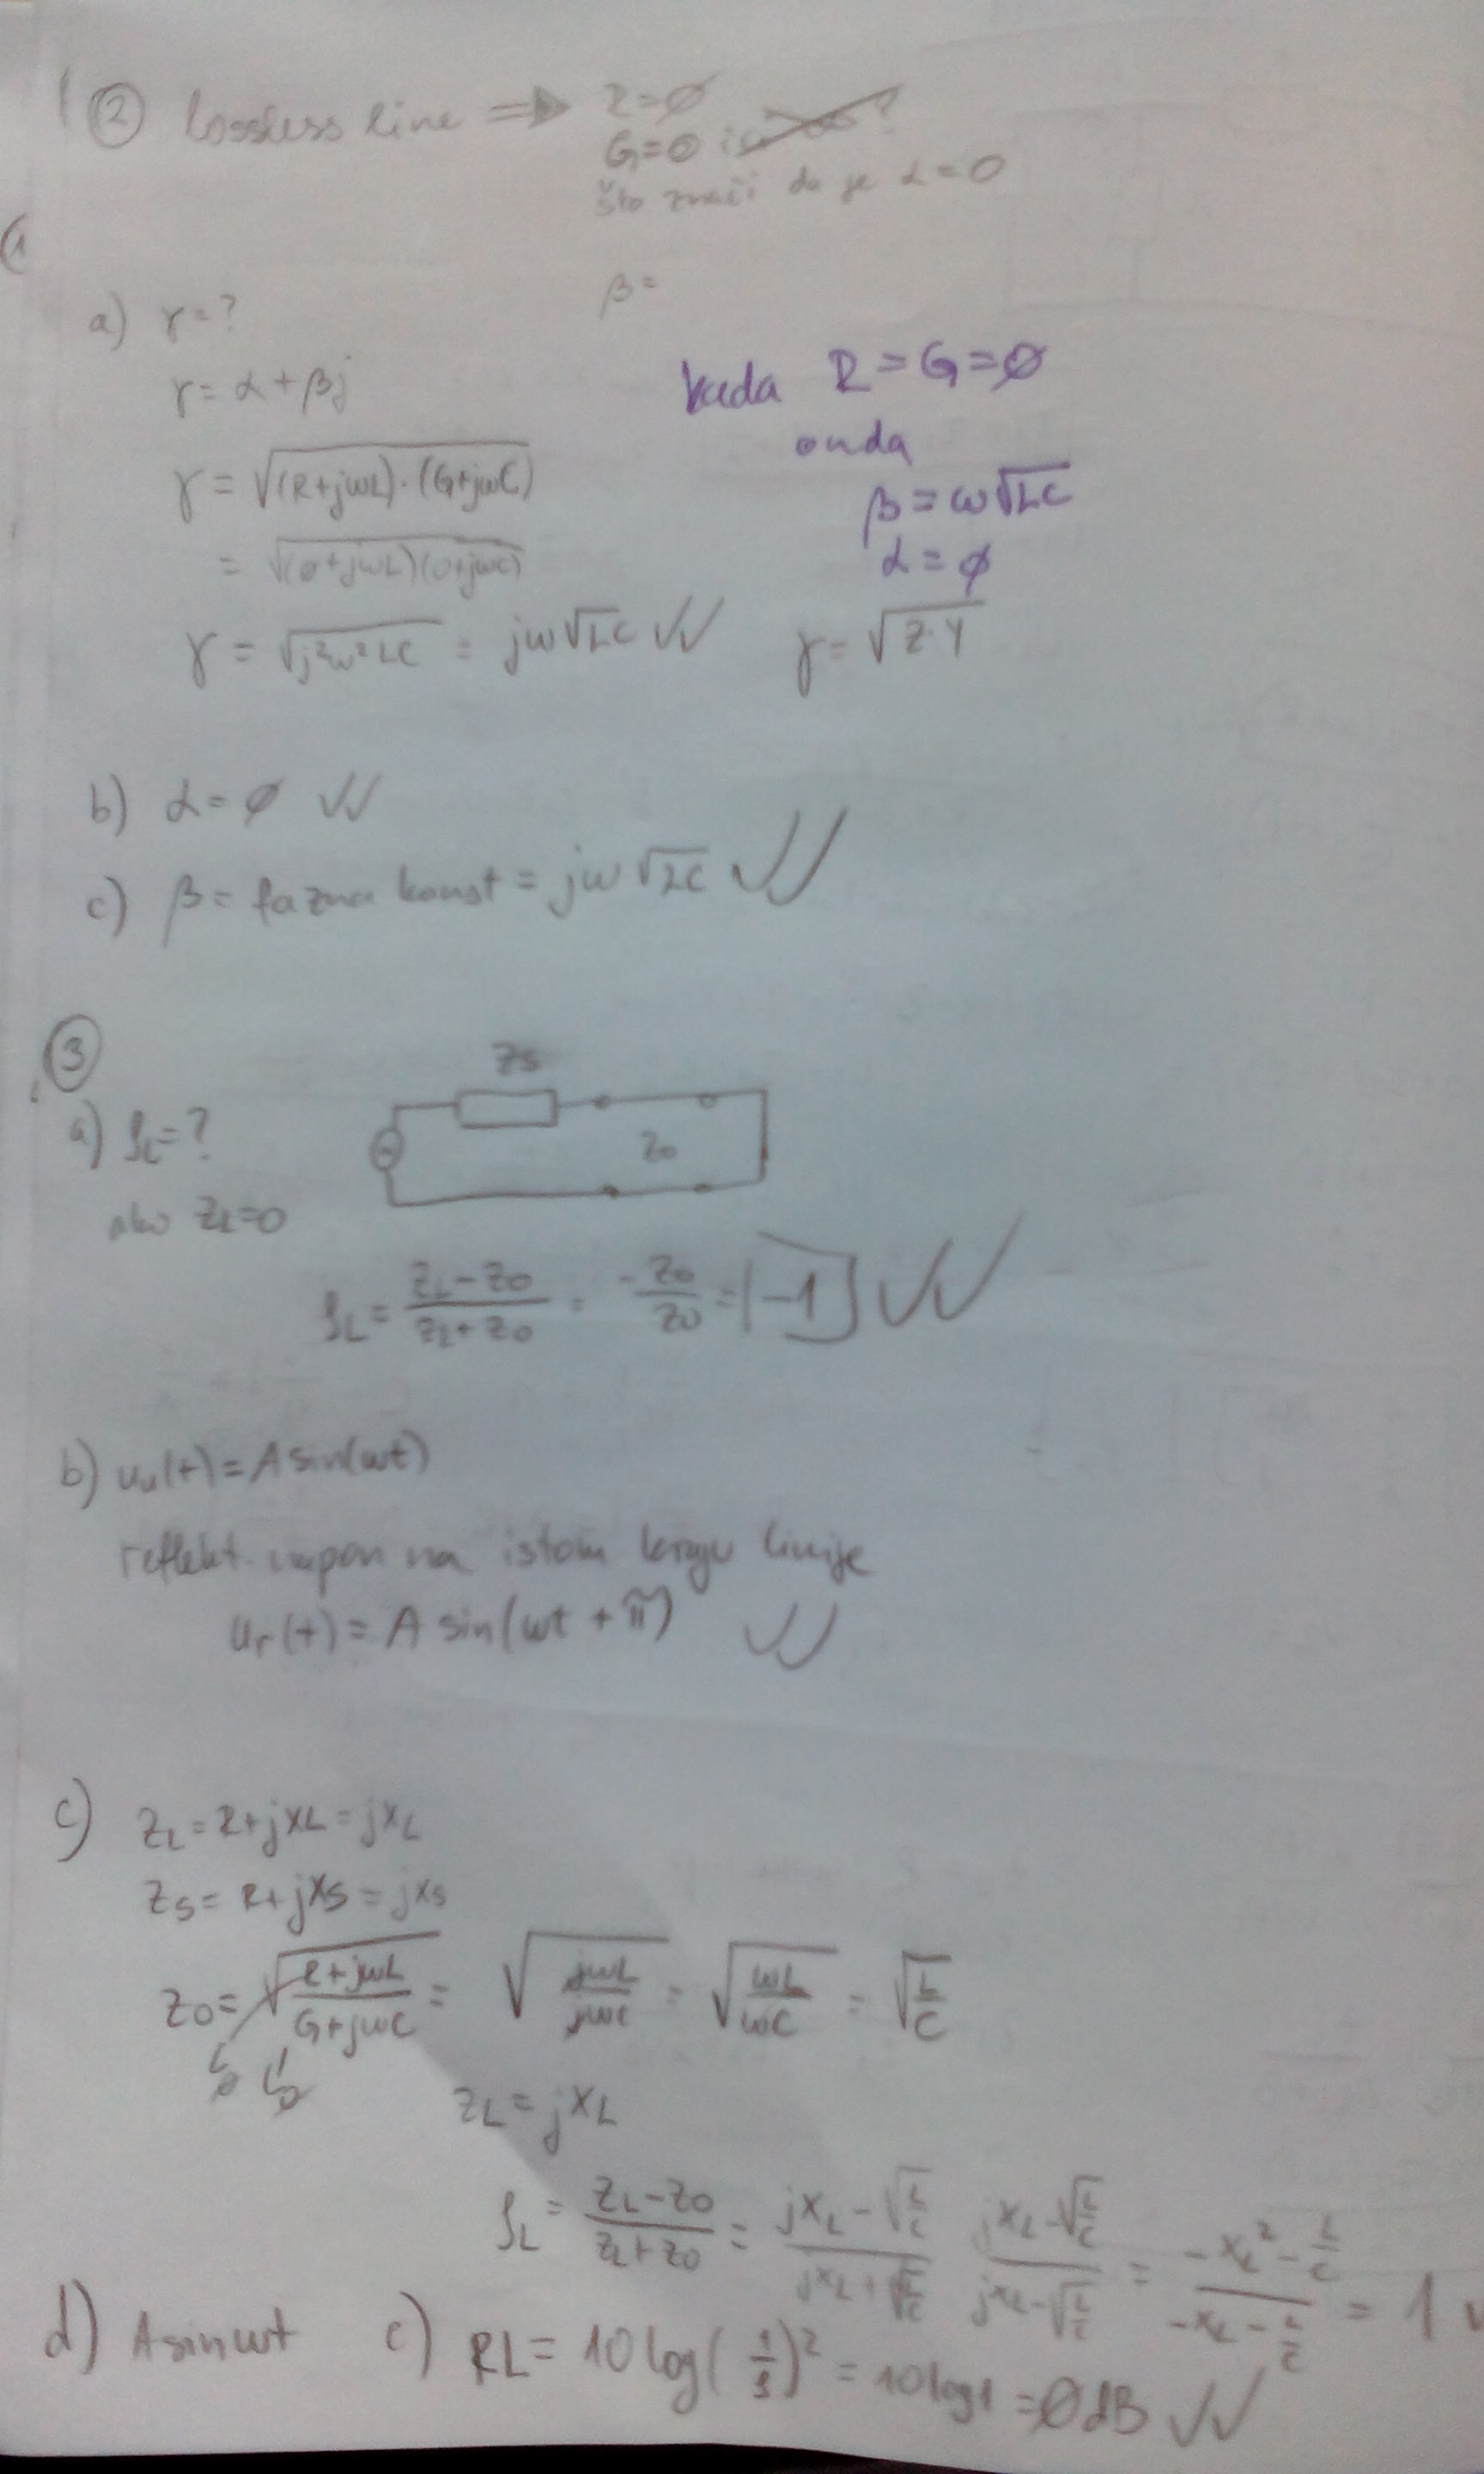 ② lossless line ⇒ R=∅
G=0
što znači da je α=0
β=
a) γ=?
γ=α+βj
γ=√((R+jωL)·(G+jωC))
=√((0+jωL)(0+jωC))
γ=√(j²ω²LC) = jω√LC ✓✓
kada R=G=∅
onda
β=ω√LC
α=∅
γ=√(Z·Y)
b) α=∅ ✓✓
c) β= fazna konst = jω√LC ✓✓
③
a) ρL=?
ako ZL=0
Zs
Z0
ρL= (ZL-Z0)/(ZL+Z0) = -Z0/Z0 = |-1| ✓✓
b) uu(t)=A sin(ωt)
reflekt. napon na istom kraju linije
ur(t)=A sin(ωt+π) ✓✓
c) ZL=R+jXL=jXL
Zs=R+jXs=jXs
Z0=√((R+jωL)/(G+jωC)) = √(jωL/jωC) = √(ωL/ωC) = √(L/C)
ZL=jXL
ρL= (ZL-Z0)/(ZL+Z0) = (jXL-√(L/C))/(jXL+√(L/C)) (jXL-√(L/C))/(jXL-√(L/C)) = (-XL²-L/C)/(-XL-L/C) = 1
d) A sin ωt
e) RL=10log(1/1)² = 10log1 = ∅dB ✓✓